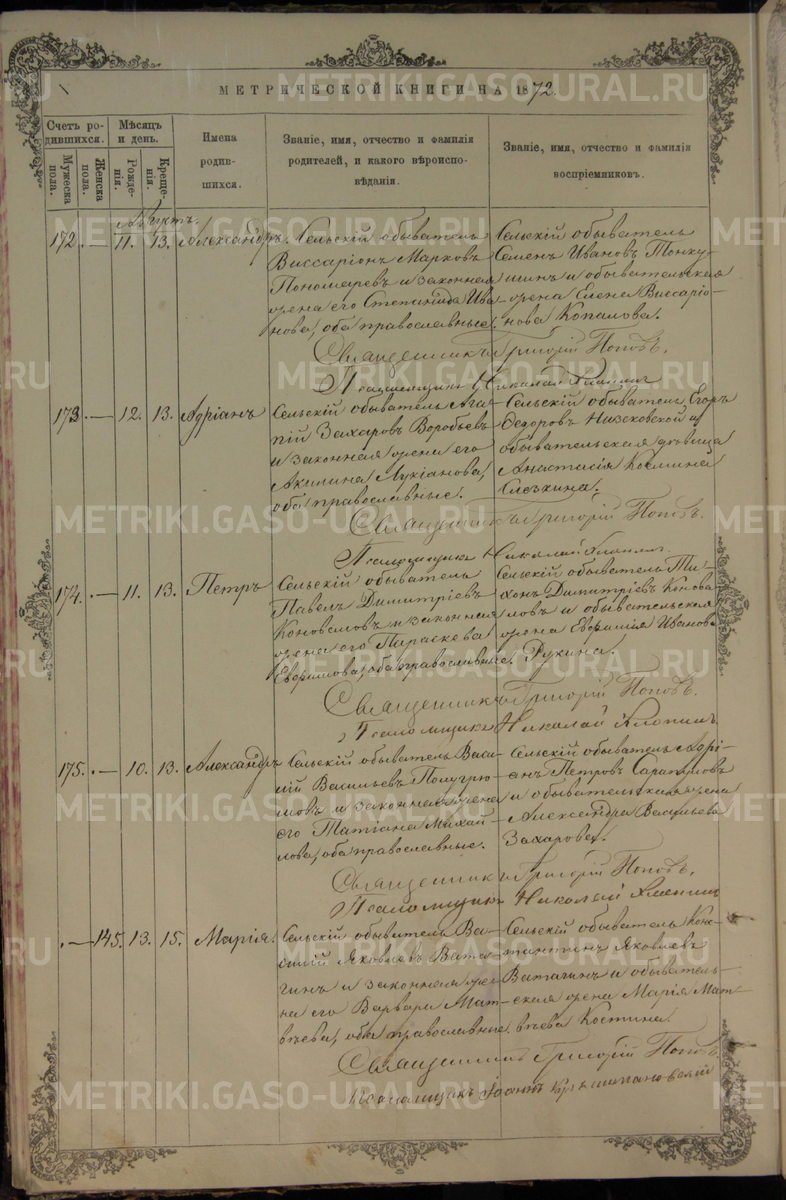 МЕТРИЧЕСКОЙ КНИГИ НА 1872.
Счетъ родившихся.
Мужеска пола.
Женска пола.
Мѣсяцъ и день.
Рожденія.
Крещенія.
Имена родившихся.
Званіе, имя, отчество и фамилія родителей, и какого вѣроисповѣданія.
Званіе, имя, отчество и фамилія воспріемниковъ.
Августъ.
172. — 11. 13. Александръ.
Сельскій обыватель
Виссаріонъ Марковъ
Пономаревъ и законная
жена его Степанида Ива-
нова, оба православные.
Сельскій обыватель
Семенъ Ивановъ Тонку-
шинъ и обывательская
жена Елена Виссаріо-
нова Копалова.
Священникъ Григорій Поповъ.
Псаломщикъ Николай
173. — 12. 13. Адріанъ
Сельскій обыватель Ага-
пій Захаровъ Воробьевъ
и законная жена его
Акилина Лукіанова,
оба православные.
Сельскій обыватель Егоръ
Федоровъ Низековской и
обывательская дѣвица
Анастасія Космина
Священникъ Григорій Поповъ.
Псаломщикъ Николай
174. — 11. 13. Петръ
Сельскій обыватель
Павелъ Димитріевъ
Коноваловъ и законная
жена его Параскева
Ефимова, оба православные.
Сельскій обыватель Ти-
хонъ Димитріевъ Конова-
ловъ и обывательская
жена Евфимія Иванова
Рукина.
Священникъ Григорій Поповъ.
Псаломщикъ Николай
175. — 10. 13. Александръ
Сельскій обыватель Васи-
лій Васильевъ Полугрю-
мовъ и законная жена
его Татіана Михай-
лова, оба православные.
Сельскій обыватель Адрі-
анъ Петровъ Сарапуловъ
и обывательская жена
Александра Васильева
Захарова.
Священникъ Григорій Поповъ.
Псаломщикъ Николай
— 145. 13. 15. Марія.
Сельскій обыватель Ва-
силій Яковлевъ Вата-
гинъ и законная же-
на его Варвара Мат-
вѣева, оба православные.
Сельскій обыватель Конс-
тантинъ Яковлевъ
Ватагинъ и обыватель-
ская жена Марія Мат-
вѣева Костина.
Священникъ Григорій Поповъ.
Псаломщикъ Іоаннъ
METRIKI.GASO-URAL.RU